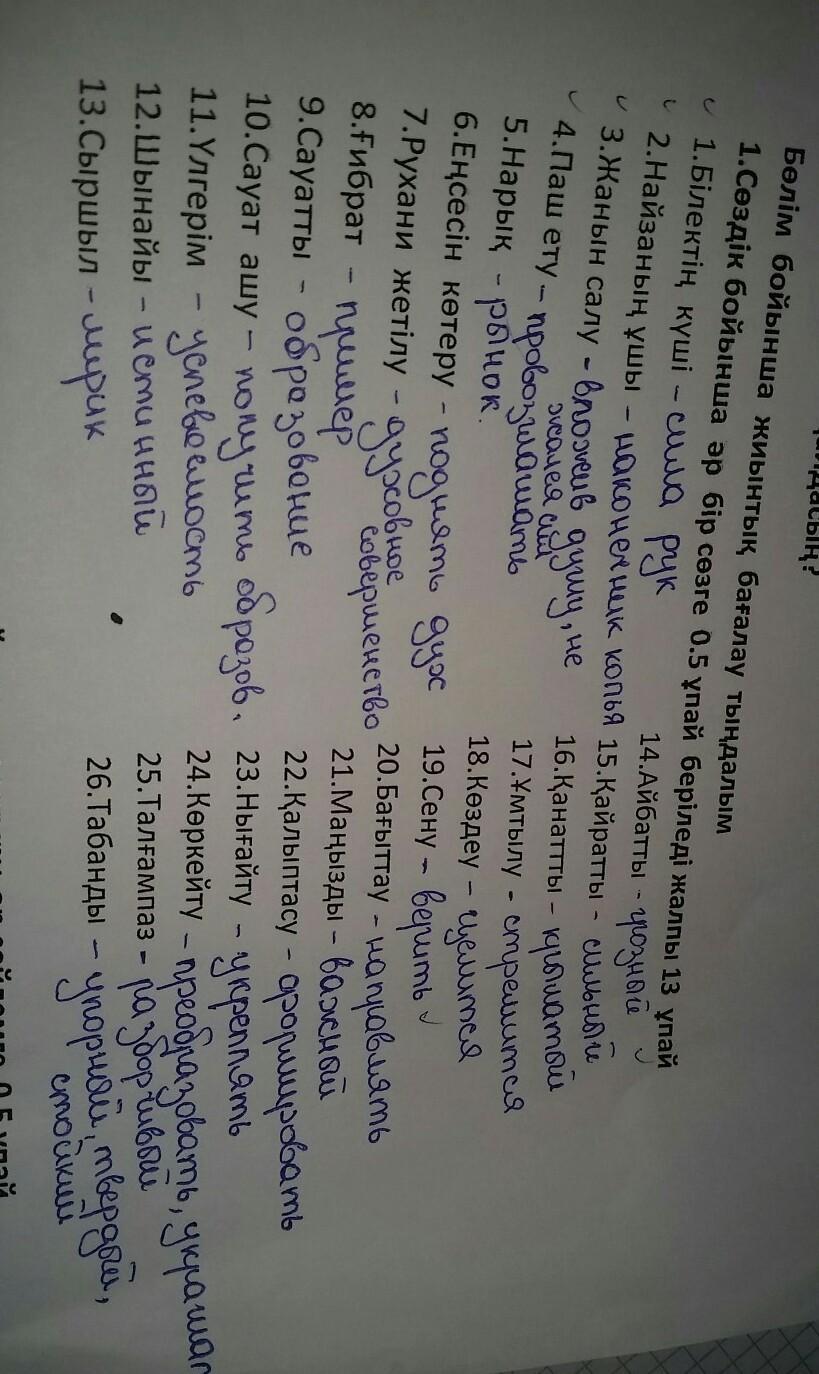 Бөлім бойынша жиынтық бағалау тыңдалым
1.Сөздік бойынша әр бір сөзге 0.5 ұпай беріледі жалпы 13 ұпай
1.Білектің күші - сила рук
2.Найзаның ұшы - наконечник копья
3.Жанын салу - вложив душу, не
жалея сил
4.Паш ету - провозглашать
5.Нарық - рынок.
6.Еңсесін көтеру - поднять дух
7.Рухани жетілу - духовное
совершенство
8.Ғибрат - пример
9.Сауатты - образование
10.Сауат ашу - получить образов.
11.Үлгерім - успеваемость
12.Шынайы - истинный
13.Сыршыл - лирик
14.Айбатты - грозный
15.Қайратты - сильный
16.Қанатты - крылатый
17.Ұмтылу - стремится
18.Көздеу - целится
19.Сену - верить
20.Бағыттау - направлять
21.Маңызды - важной
22.Қалыптасу - формировать
23.Нығайту - укреплять
24.Көркейту - преобразовать, украшат
25.Талғампаз - разборчивый
26.Табанды - упорный, твердый,
стойкий